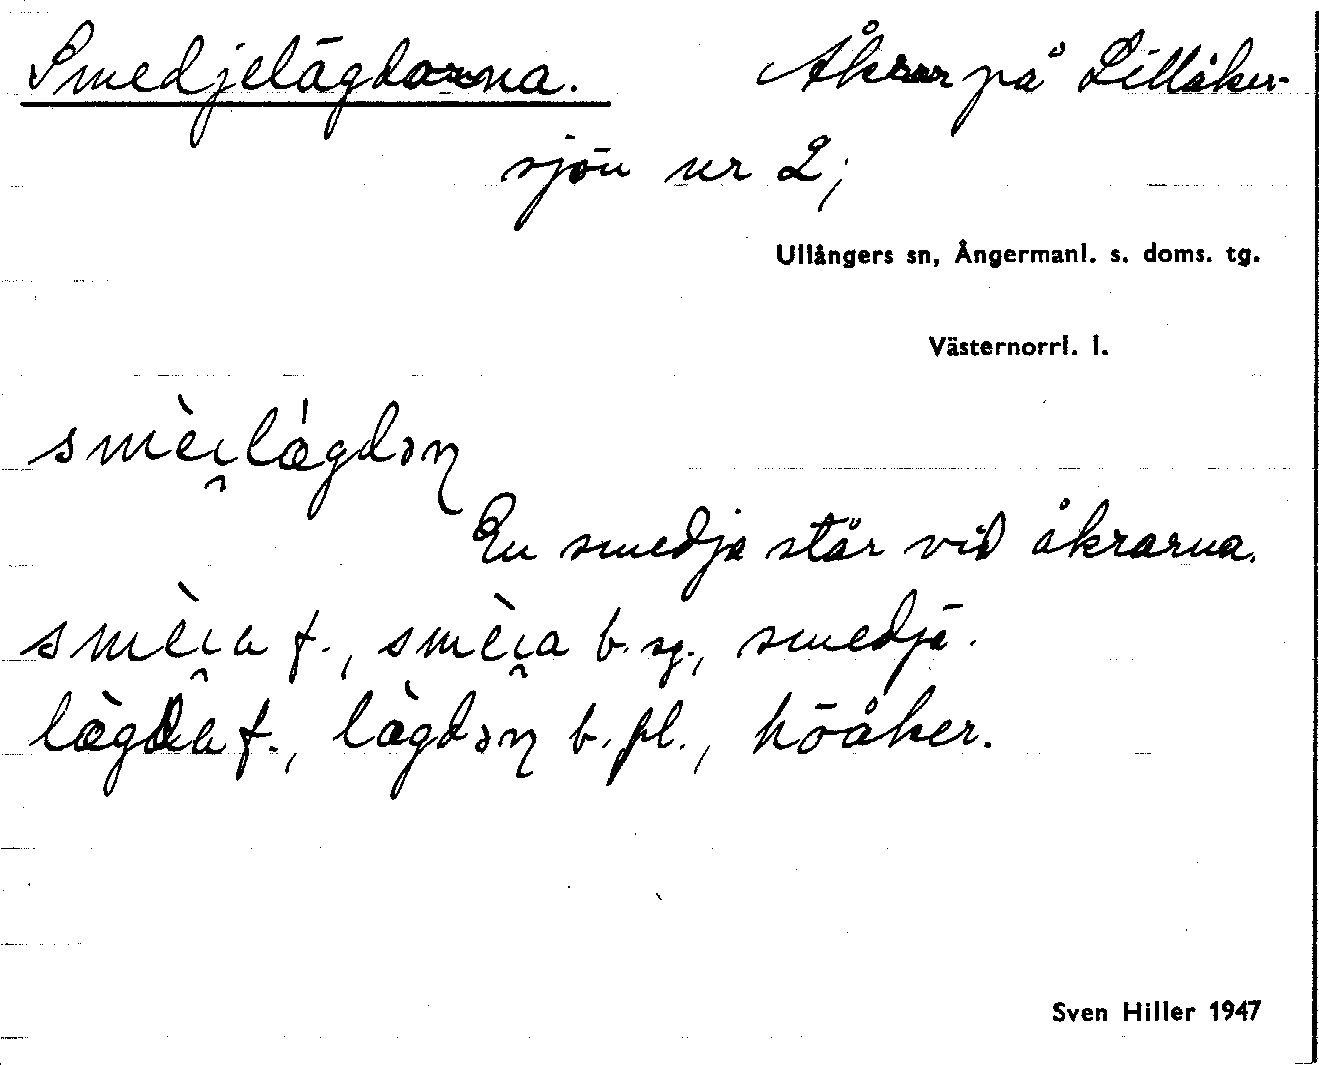 Smedjelägdorna. Åkrar på Lillåker-
sjön nr 2;
Ullångers sn, Ångermanl. s. doms. tg.
Västernorrl. l.
smèi̯lágdəɳ
En smedja står vid åkrarna.
smèi̯a f., smèi̯a b. sg., smedja.
lægda f., lægdəɳ b. pl., höåker.
Sven Hiller 1947